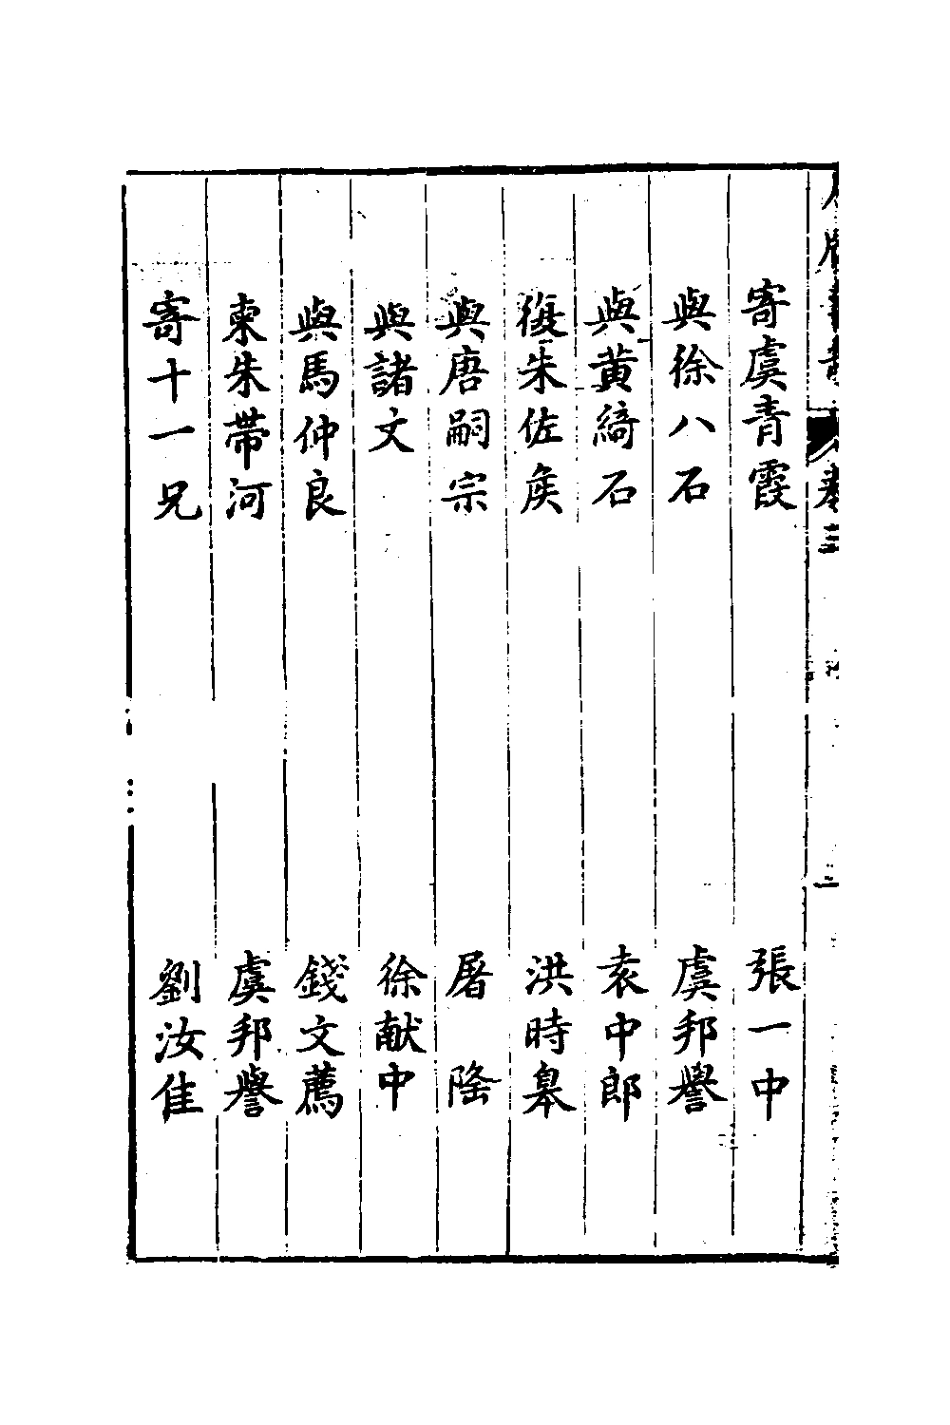 寄虞青霞 張一中
與徐八石 虞邦譽
與黃綺石 袁中郎
復朱佐矦 洪時皋
與唐嗣宗 屠隆
與諸文 徐献中
與馬仲良 錢文薦
柬朱帶河 虞邦譽
寄十一兄 劉汝佳